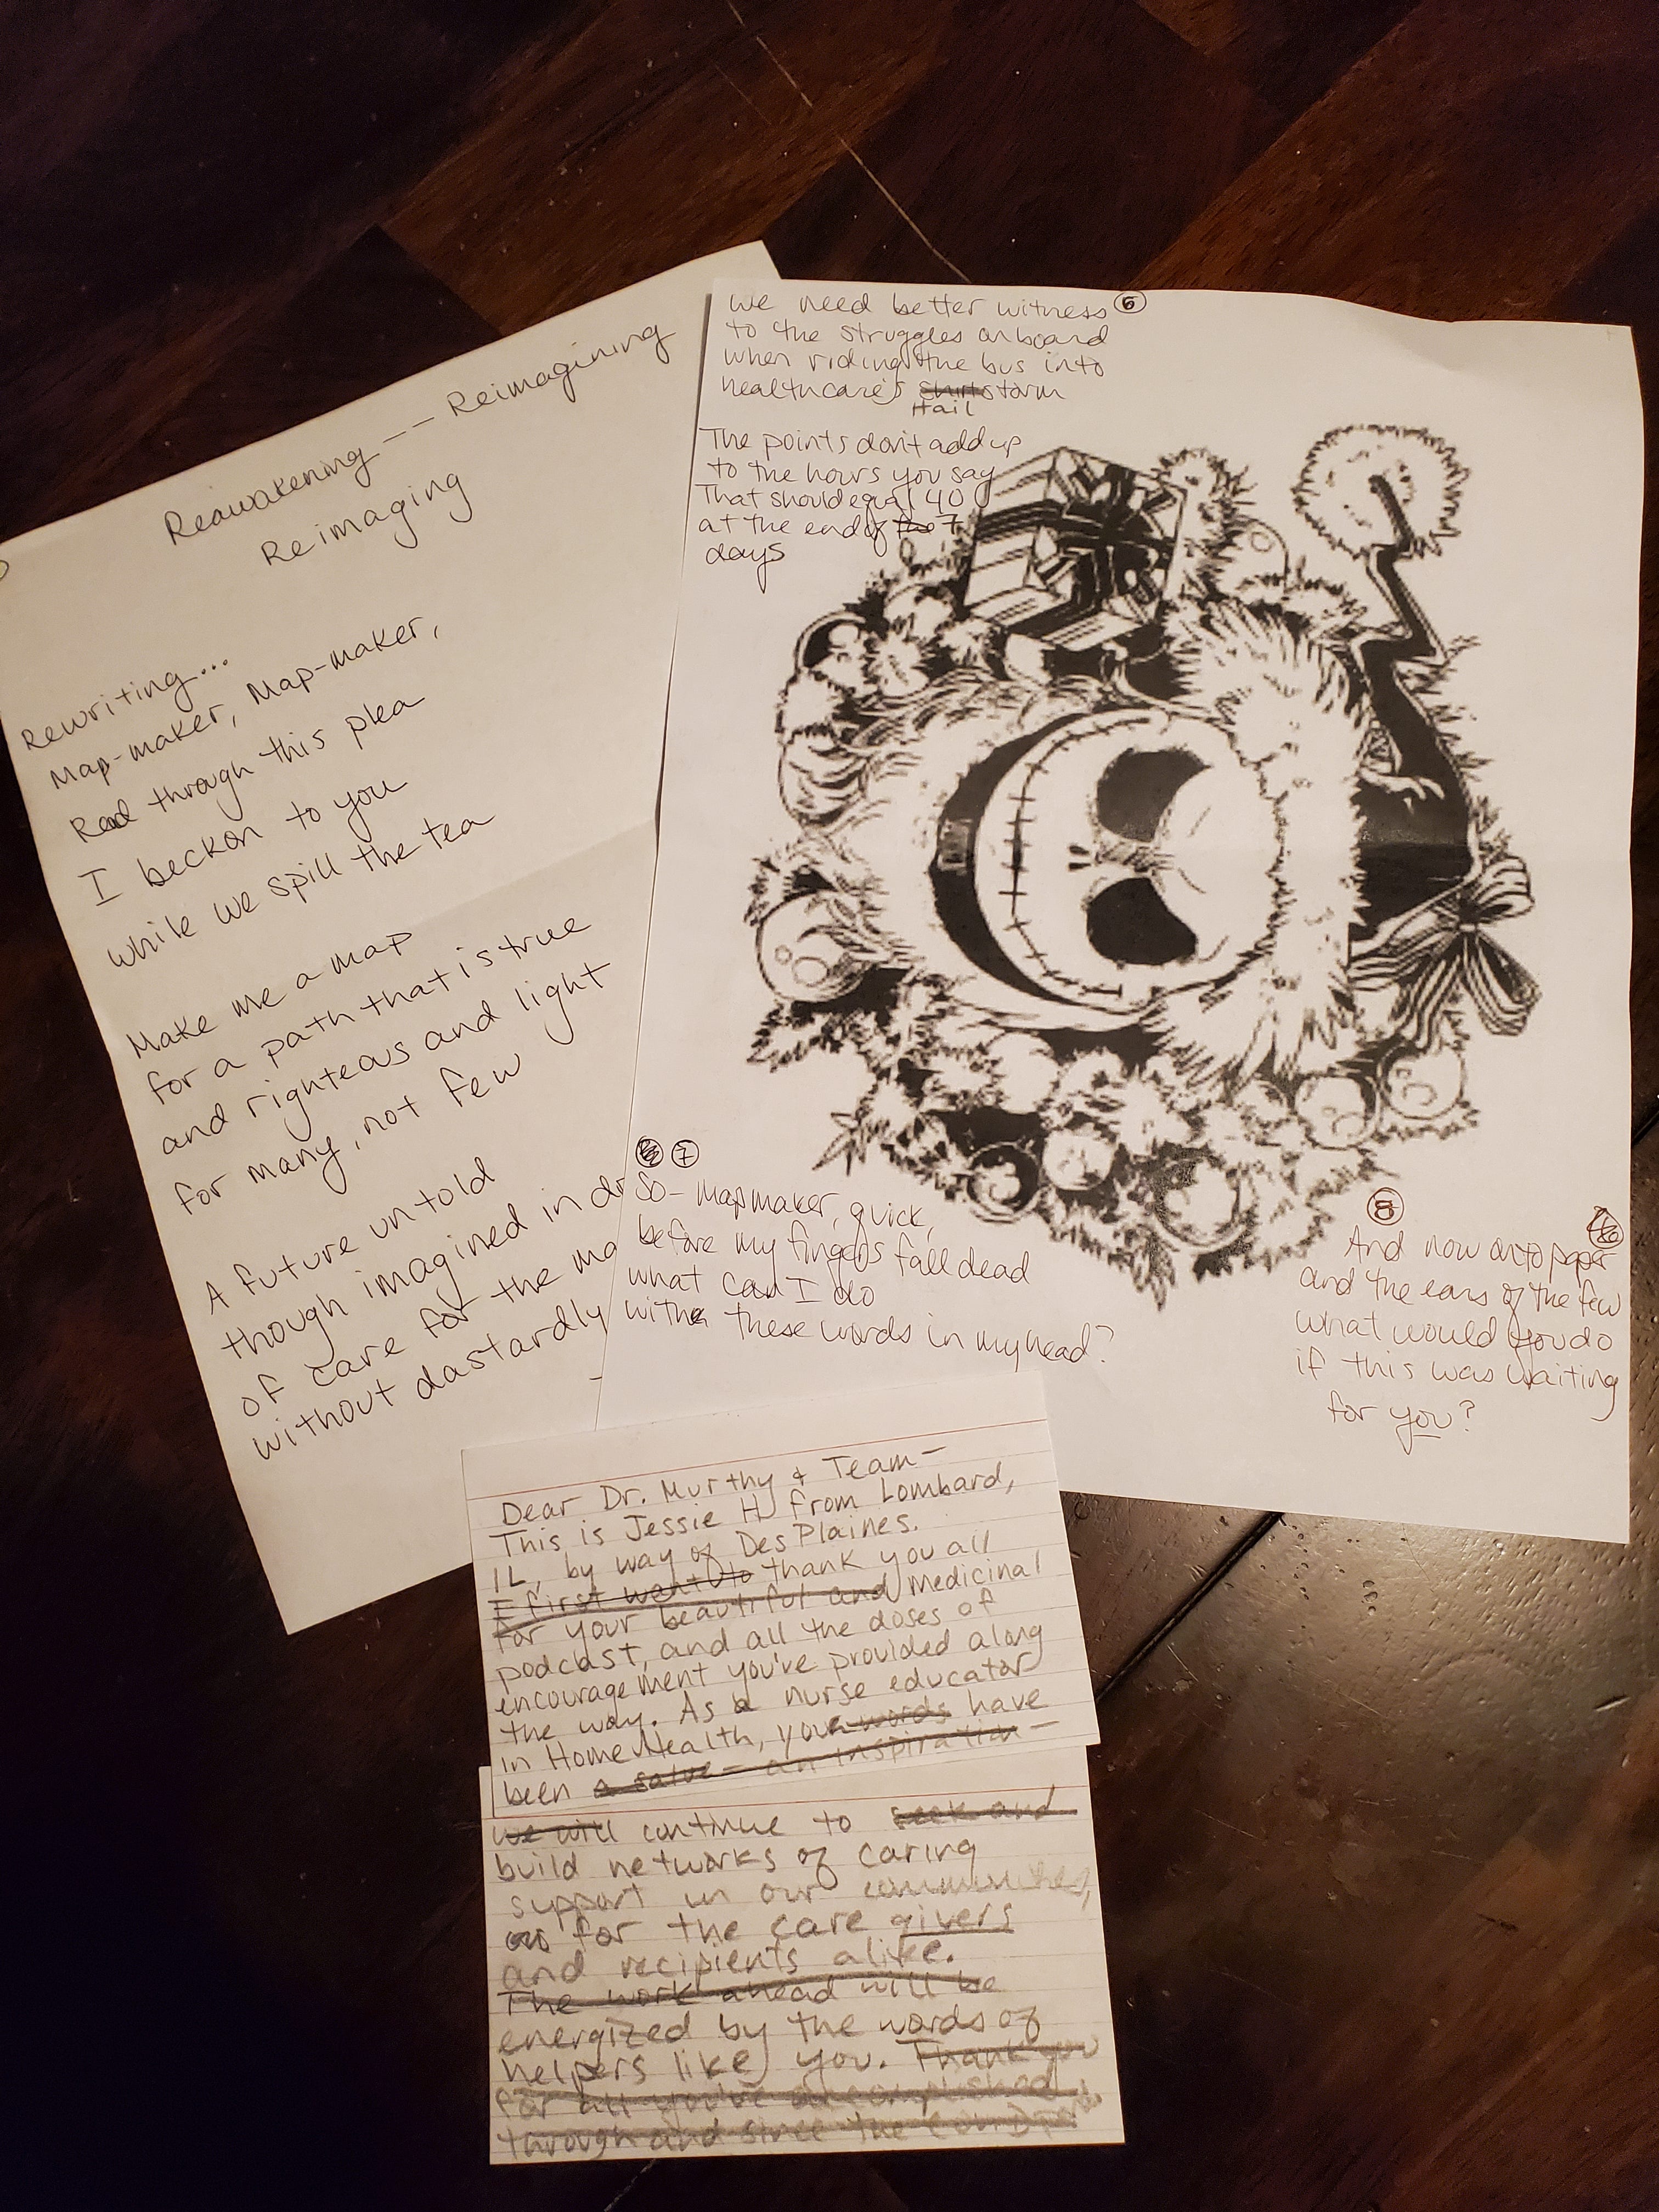 Reawakening -- Reimagining
Reimaging
Rewriting...
Map-maker, Map-maker,
Read through this plea
I beckon to you
while we spill the tea
Make me a map
for a path that is true
and righteous and light
for many, not few
A future untold
though imagined in dr
of care for the ma
without dastardly
we need better witness 6
to the struggles onboard
when riding the bus into
healthcare's storm
Hail
The points don't add up
to the hours you say
That should equal 40
at the end of the 7
days
7
So - mapmaker, quick,
before my fingers fall dead
what can I do
with these words in my head?
8
And now onto paper
and the ears of the few
what would you do
if this was waiting
for you?
Dear Dr. Murthy & Team-
This is Jessie H from Lombard,
IL, by way of Des Plaines.
I first want to thank you all
for your beautiful and medicinal
podcast, and all the doses of
encouragement you've provided along
the way. As a nurse educator
in Home Health, your words have
been a salve - an inspiration -
we will continue to seek and
build networks of caring
support in our communities,
for the care givers
and recipients alike.
The work ahead will be
energized by the words of
helpers like you. Thank you
for all you've accomplished
through and since the